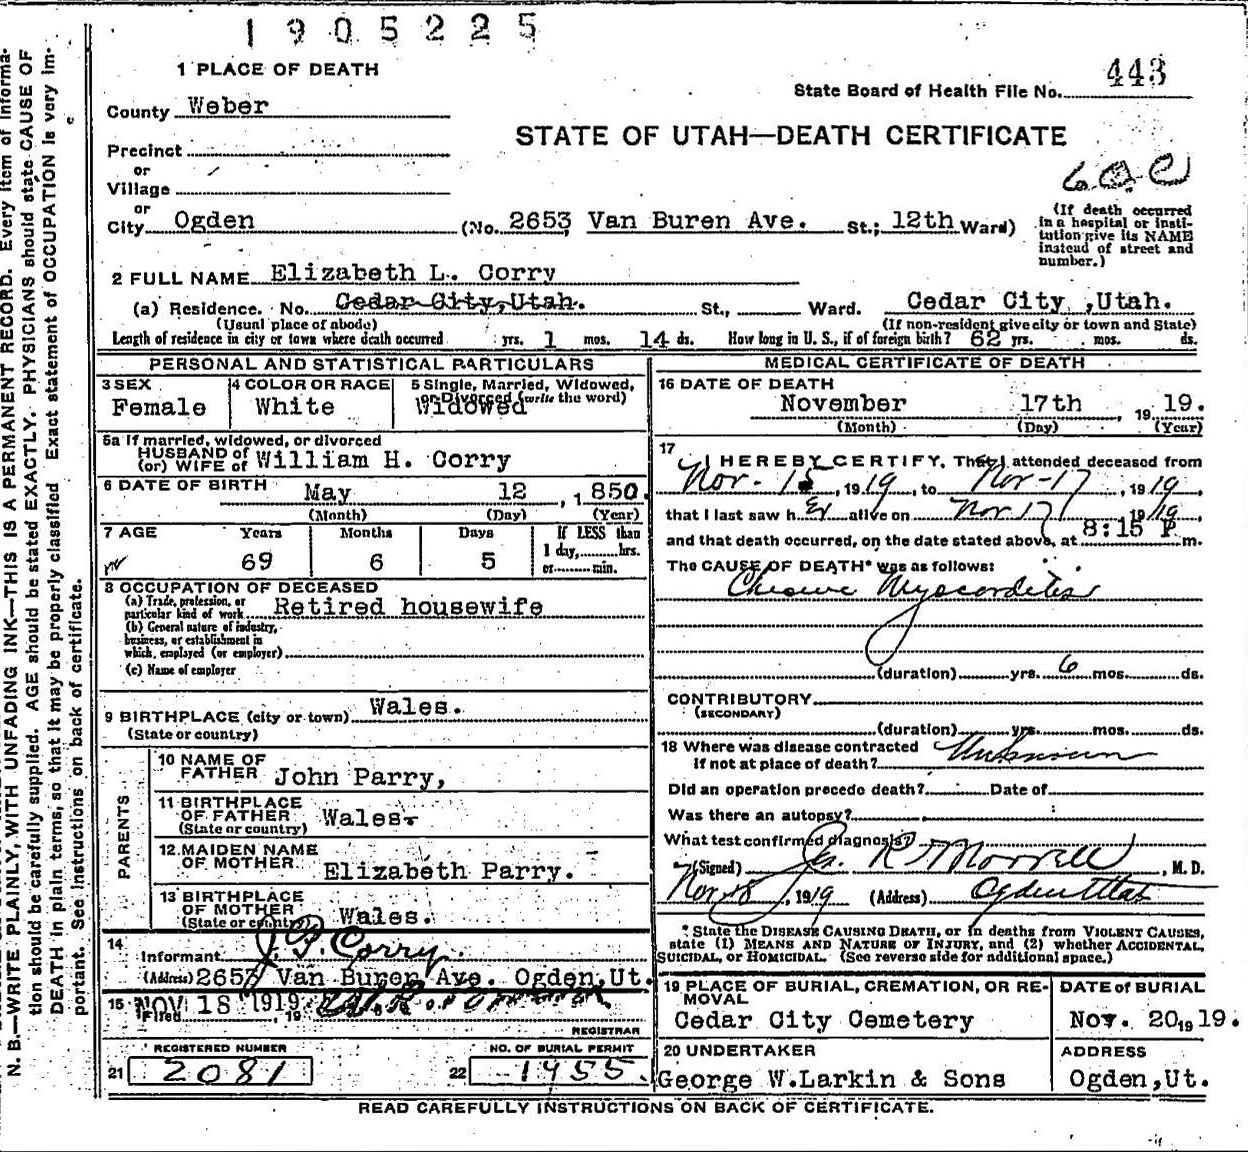 1905225
1 PLACE OF DEATH
State Board of Health File No. 443
County Weber
STATE OF UTAH—DEATH CERTIFICATE
Precinct
or
Village
or
City Ogden (No. 2653 Van Buren Ave. St.; 12th Ward)
(If death occurred in a hospital or institution give its NAME instead of street and number.)
2 FULL NAME Elizabeth L. Corry
(a) Residence. No. Cedar City, Utah. St., Ward. Cedar City ,Utah.
(Usual place of abode) (If non-resident give city or town and State)
Length of residence in city or town where death occurred yrs. 1 mos. 14 ds. How long in U. S., if of foreign birth? 62 yrs. mos. ds.
PERSONAL AND STATISTICAL PARTICULARS
3 SEX
Female
4 COLOR OR RACE
White
5 Single, Married, Widowed, or Divorced (write the word)
Widowed
5a If married, widowed, or divorced
HUSBAND of
(or) WIFE of William H. Corry
6 DATE OF BIRTH May 12 , 1850.
(Month) (Day) (Year)
7 AGE Years Months Days If LESS than
69 6 5 1 day,........hrs.
or..........min.
8 OCCUPATION OF DECEASED
(a) Trade, profession, or
particular kind of work Retired housewife
(b) General nature of industry,
business, or establishment in
which, employed (or employer)
(c) Name of employer
9 BIRTHPLACE (city or town) Wales.
(State or country)
PARENTS
10 NAME OF
FATHER John Parry,
11 BIRTHPLACE
OF FATHER Wales.
(State or country)
12 MAIDEN NAME
OF MOTHER Elizabeth Parry.
13 BIRTHPLACE
OF MOTHER
(State or country) Wales.
14
Informant J. P. Corry.
(Address) 2653 Van Buren Ave. Ogden, Ut.
15 Filed NOV 18 1919, 19
REGISTRAR
REGISTERED NUMBER NO. OF BURIAL PERMIT
21 2081 22 1955
MEDICAL CERTIFICATE OF DEATH
16 DATE OF DEATH
November 17th , 19 19.
(Month) (Day) (Year)
17
I HEREBY CERTIFY, That I attended deceased from
Nov- 15, 1919, to Nov-17, 1919,
that I last saw h er alive on Nov 17 1919,
and that death occurred, on the date stated above, at 8:15 P. m.
The CAUSE OF DEATH* was as follows:
Chronic Myocarditis
(duration) yrs. 6 mos. ds.
CONTRIBUTORY
(SECONDARY)
(duration) yrs. mos. ds.
18 Where was disease contracted
if not at place of death? Unknown
Did an operation precede death? Date of
Was there an autopsy?
What test confirmed diagnosis?
(Signed) R Morrell, M. D.
Nov 18, 1919 (Address) Ogden Utah
* State the DISEASE CAUSING DEATH, or in deaths from VIOLENT CAUSES,
state (1) MEANS AND NATURE OF INJURY, and (2) whether ACCIDENTAL,
SUICIDAL, or HOMICIDAL. (See reverse side for additional space.)
19 PLACE OF BURIAL, CREMATION, OR RE-
MOVAL
Cedar City Cemetery
DATE of BURIAL
Nov. 20, 1919.
20 UNDERTAKER
George W.Larkin & Sons
ADDRESS
Ogden,Ut.
READ CAREFULLY INSTRUCTIONS ON BACK OF CERTIFICATE.
N. B.—WRITE PLAINLY, WITH UNFADING INK—THIS IS A PERMANENT RECORD. Every item of informa-
tion should be carefully supplied. AGE should be stated EXACTLY. PHYSICIANS should state CAUSE OF
DEATH in plain terms, so that it may be properly classified. Exact statement of OCCUPATION is very im-
portant. See Instructions on back of certificate.